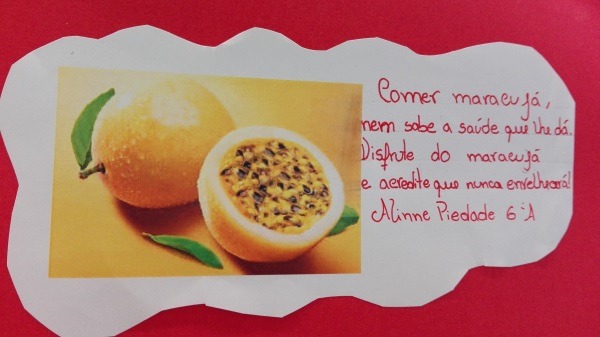 Comer maracujá,
nem sabe a saúde que lhe dá.
Disfrute do maracujá
e acredite que nunca envelhecerá!
Alinne Piedade 6ºA